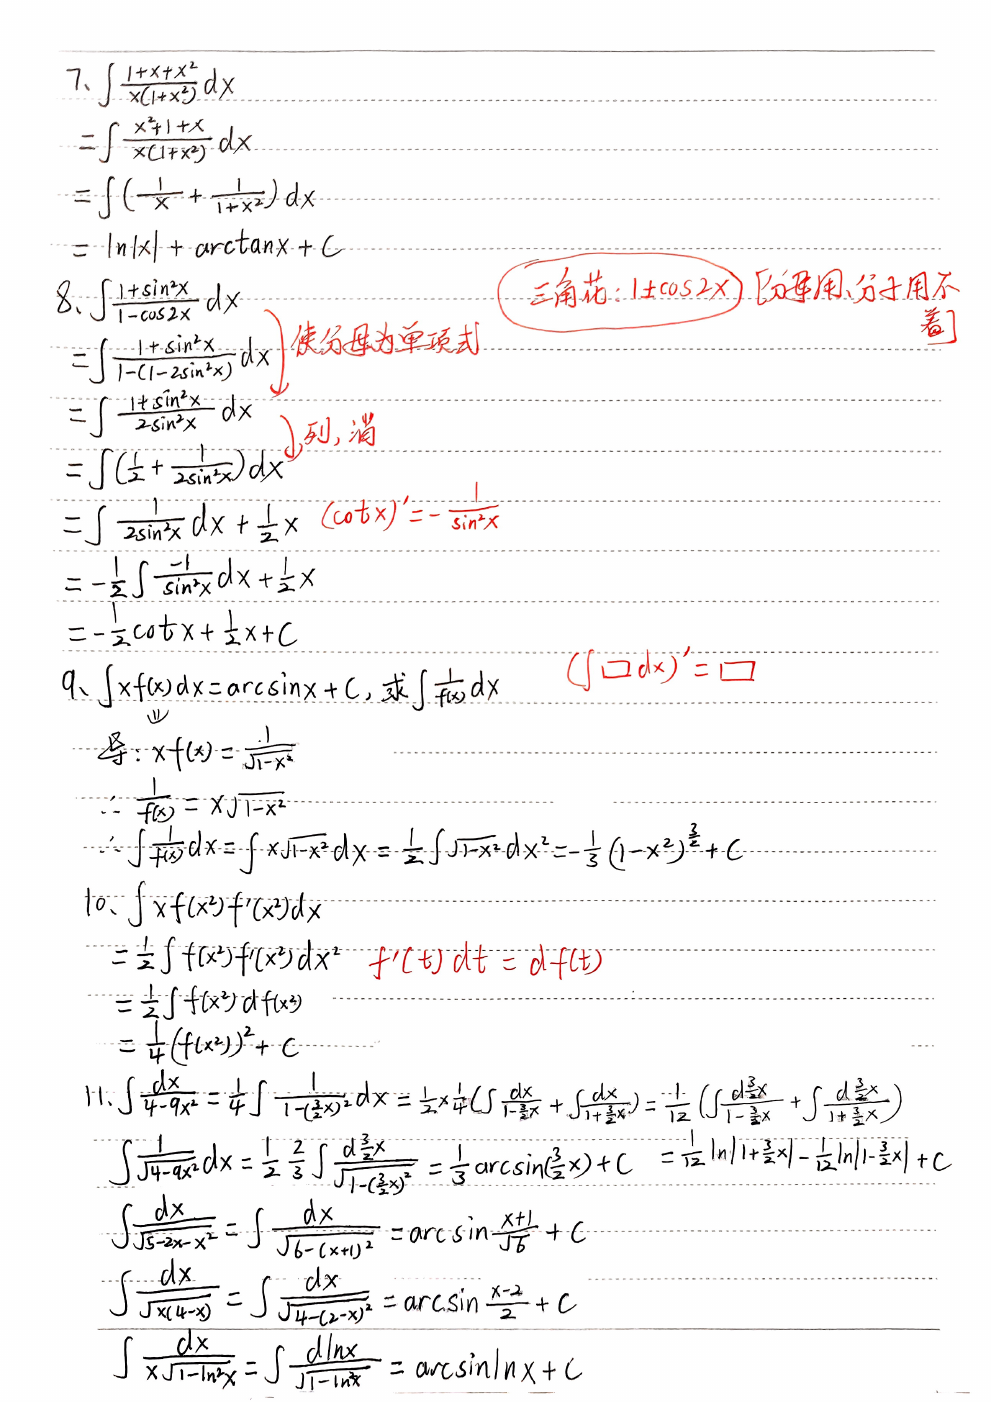 7、∫ (1+x+x²)/(x(1+x²)) dx
= ∫ (x²+1+x)/(x(1+x²)) dx
= ∫ (1/x + 1/(1+x²)) dx
= ln|x| + arctanx + C
8、∫ (1+sin²x)/(1-cos2x) dx 三角花：1±cos2x [分母用、分子用不着]
= ∫ (1+sin²x)/(1-(1-2sin²x)) dx 使分母为单项式
= ∫ (1+sin²x)/(2sin²x) dx
列，消
= ∫ (1/2 + 1/(2sin²x)) dx
= ∫ 1/(2sin²x) dx + 1/2 x (cotx)′ = - 1/sin²x
= -1/2 ∫ -1/sin²x dx + 1/2 x
= -1/2 cotx + 1/2 x + C
9、∫ xf(x)dx = arcsinx + C, 求 ∫ 1/f(x) dx (∫□dx)′ = □
⇓
导：xf(x) = 1/√(1-x²)
∴ 1/f(x) = x√(1-x²)
∴ ∫ 1/f(x) dx = ∫ x√(1-x²) dx = 1/2 ∫ √(1-x²) dx² = -1/3 (1-x²)^(3/2) + C
10、∫ xf(x²)f′(x²)dx
= 1/2 ∫ f(x²)f′(x²)dx² f′(t)dt = df(t)
= 1/2 ∫ f(x²)df(x²)
= 1/4 (f(x²))² + C
11、∫ dx/(4-9x²) = 1/4 ∫ 1/(1-(3/2 x)²) dx = 1/2 × 1/4 (∫ dx/(1-3/2 x) + ∫ dx/(1+3/2 x)) = 1/12 (∫ d3/2 x/(1-3/2 x) + ∫ d3/2 x/(1+3/2 x))
= 1/12 ln|1+3/2 x| - 1/12 ln|1-3/2 x| + C
∫ 1/√(4-9x²) dx = 1/2 2/3 ∫ d3/2 x/√(1-(3/2 x)²) = 1/3 arcsin(3/2 x) + C
∫ dx/√(5-2x-x²) = ∫ dx/√(6-(x+1)²) = arcsin (x+1)/√6 + C
∫ dx/√(x(4-x)) = ∫ dx/√(4-(2-x)²) = arcsin (x-2)/2 + C
∫ dx/(x√(1-ln²x)) = ∫ dlnx/√(1-ln²x) = arcsinlnx + C